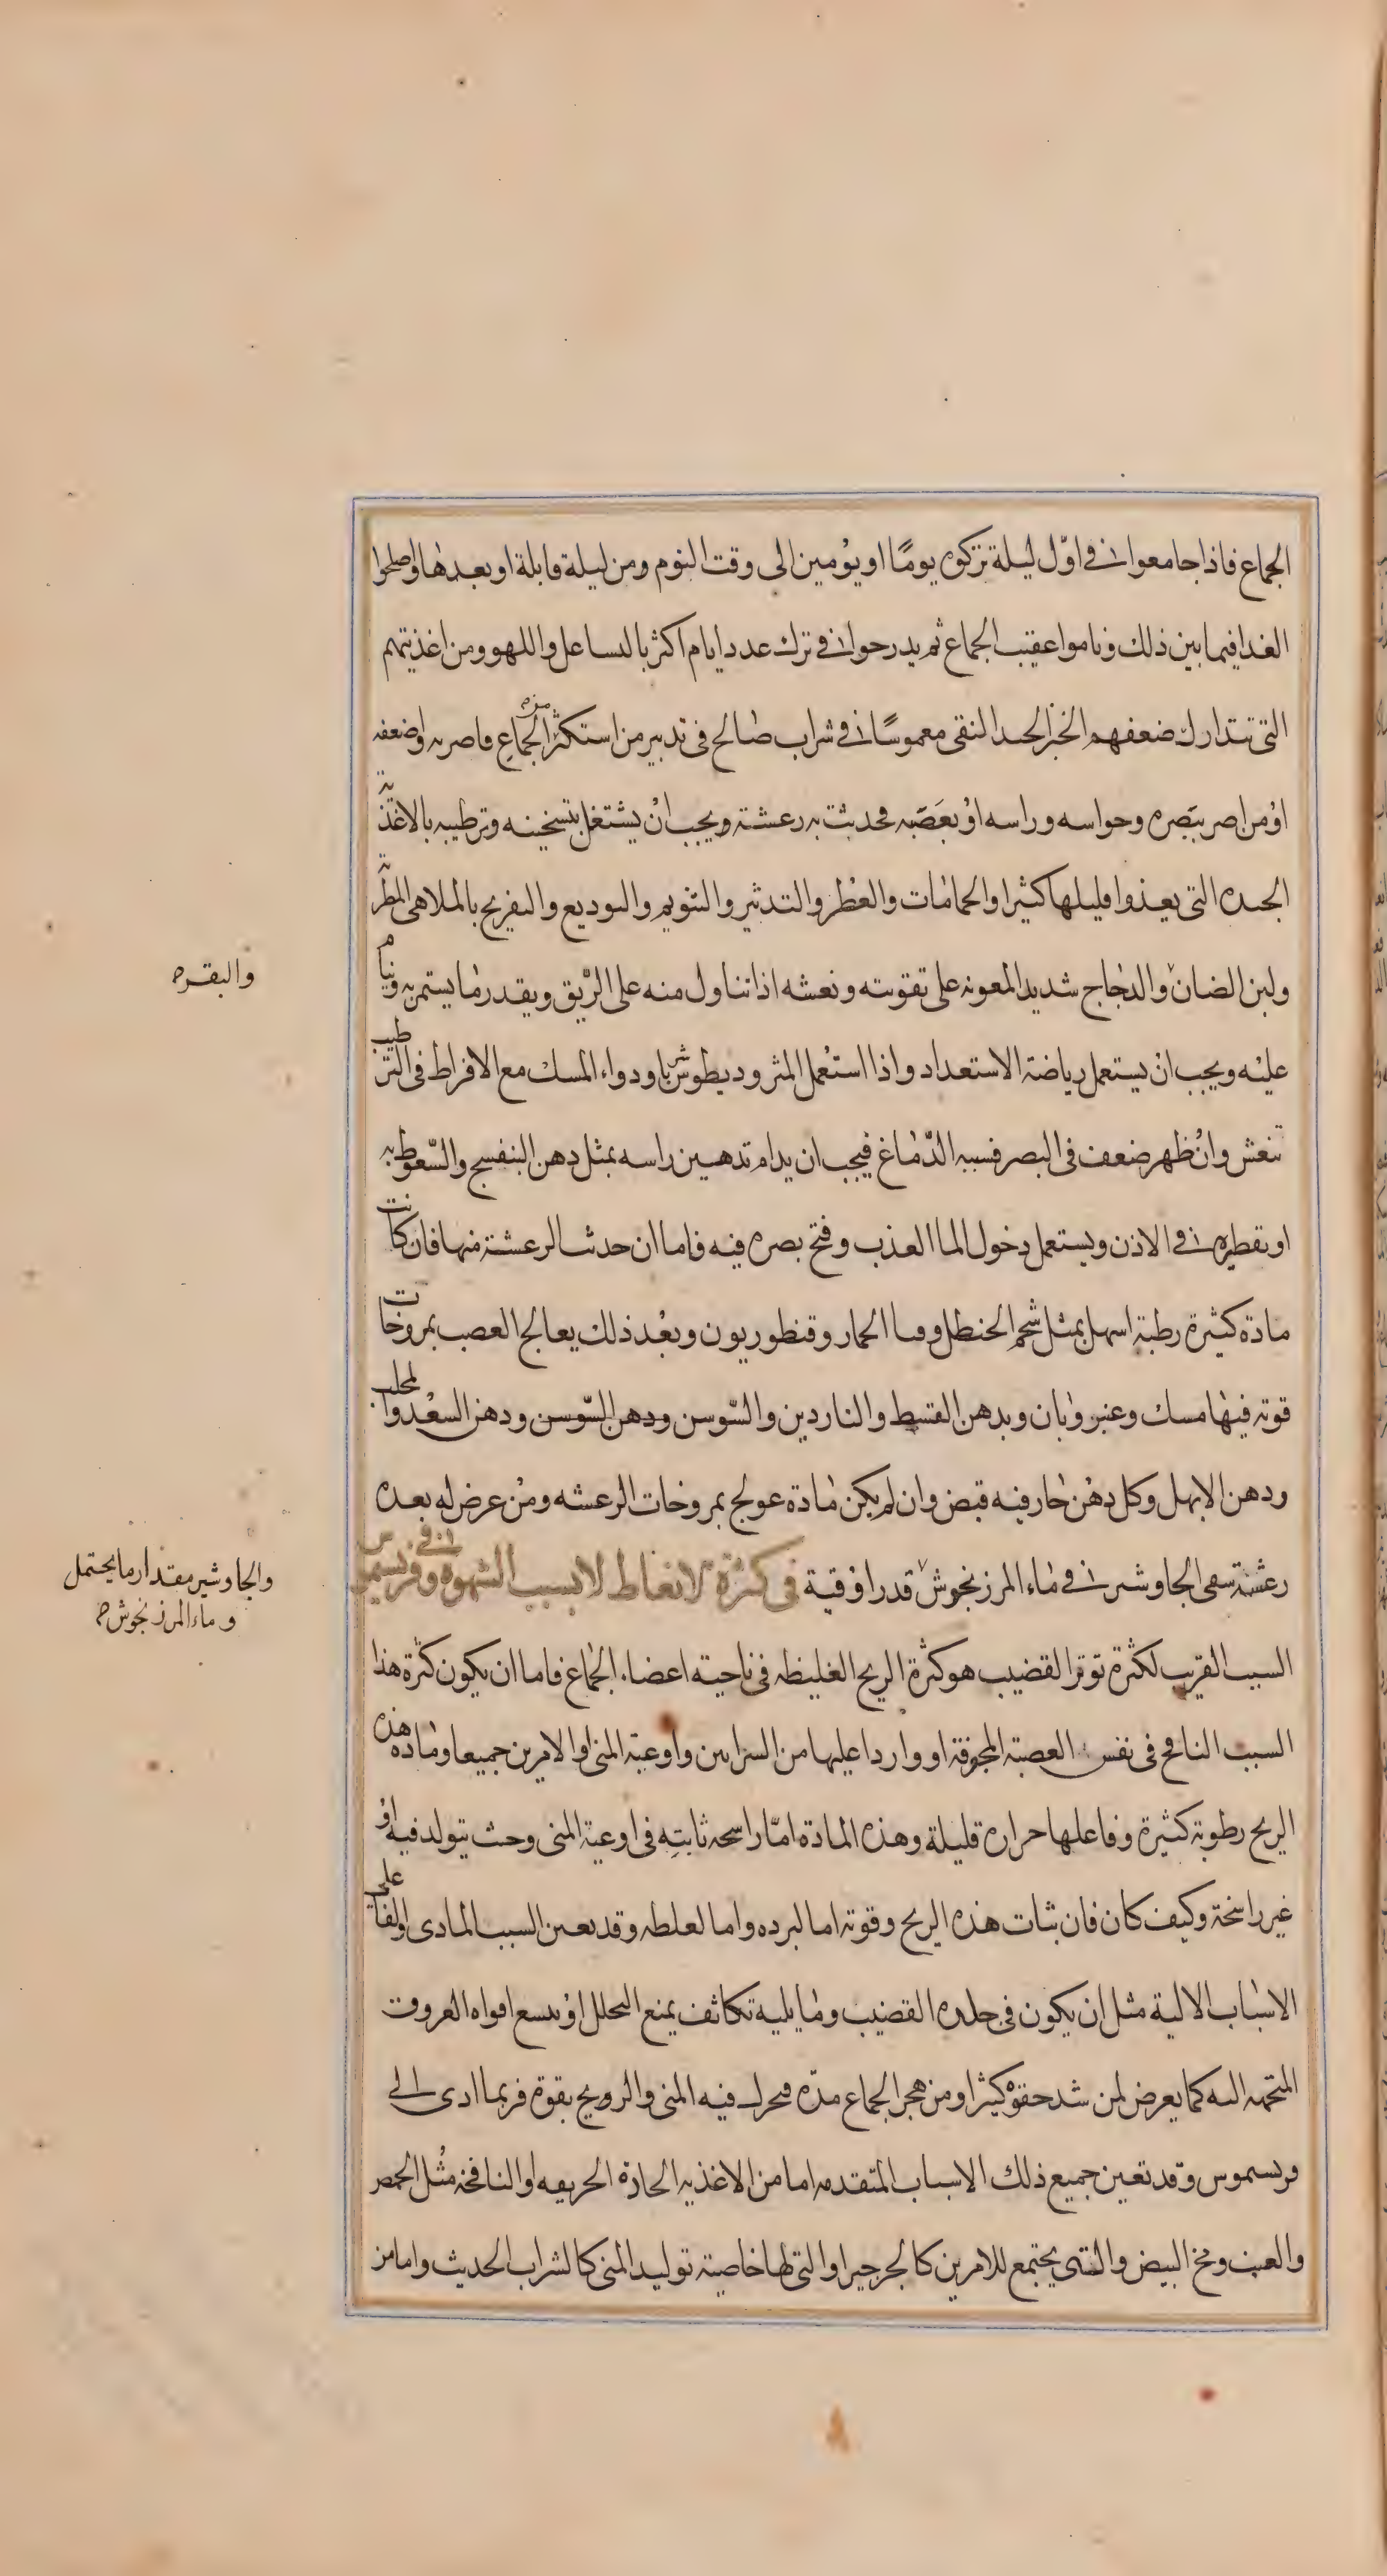 الجماع فاذا جامعوا في اوّل ليلة تركوه يومًا او يومين الى وقت النوم ومن ليلة قابلة او بعدها واصلحوا
الغدا فيما بين ذلك وناموا عقيب الجماع ثم يدرحوا في ترك عدد ايام اكثر بالتساعل واللهو ومن اغذيتهم
التى تتدارك ضعفهم الخبز الجيد النقى مغموسًا في شراب صالح في تدبير من استكثر من الجماع فاضر به واضعفه
او من اضر ببصره وحواسه وراسه او بعَصَبه فحدثت به رعشة ويجب انْ يشتغل بتسخينه وترطيبه بالاغذية
الجيده التى يغذوا قليلها كثيرا والحمامات والعطر والتدثير والتنويم والتوديع والتفريح بالملاهى المطربة
ولبن الضان والدجاج شديد المعونه على تقويته ونعشه اذا تناول منه على الرّيق وبقدر ما يستمريه ونيام
والبقر
عليْه ويجب انْ يستعمل رياضة الاستعداد واذا استعمل المثروديطوش شربا ودواء المسك مع الافراط في الترطيب
تنعش وانْ ظهر ضعف في البصر فسببه الدّماغ فيجب ان يدام تدهين راسه بمثل دهن البنفسج والسّعوط به
او تقطيره في الاذن ويستعمل دخول الماا العذب وفتح بصره فيه فاما ان حدثت الرعشة منها فان كانت
مادة كثيرة رطبة اسهل بمثل شحم الحنظل وقثا الحمار وقنطوريون وبعْد ذلك يعالج العصب بمروخات
قوته فيها مسك وعنبر وابان وبدهن القسط والناردين والسّوسن ودهن السّوسن ودهن السعْد والمحلب
ودهن الابهل وكل دهْن حار فيه قبض وان لم يكن مادة عولج بمروخات الرعشه ومنْ عرض له بعده
رعشة سقى الجاوشير في ماء المرزنجوش قدر اوقية في كثرة الانعاظ لا بسبب الشهوة وفى فريسميس
والجاوشير مقدار ما يحتمل
وماء المرزنجوش
السبب القريب لكثرة توتر القضيب هو كثرة الريح الغليظه في ناحية اعضاء الجماع فاما ان يكون كثرة هذا
السبب النافخ في نفس العصبة المجوفة او واردا عليها من الشرايين واوعية المنى او الامرين جميعا ومادة هذه
الريح رطوبة كثيرة وفاعلها حراره قليلة وهذه المادة امّا راسخه ثابتة في اوعية المنى وحيث يتولد فيه او
غير راسخة وكيف كان فان ثبات هذه الريح وقوته اما لبرده واما لغلظه وقد تعين السبب المادى والفاعلى
الاسباب الالية مثل ان يكون في جلده القضيب وما يليه تكاثف يمنع التحلل او تتسع افواه العروق
المتجهه اليه كما يعرض لمن شد حقوه كثيرا ومن هجر الجماع مدّه فتحرك فيه المنى والرويح بقوة فربما ادى الى
فريسموس وقد تعين جميع ذلك الاسباب المتقدمه اما من الاغذيه الحادة الحريفه او النافخة مثل الحمص
والعنب ومخ البيض والتى يجتمع للامرين كالجرجير او التى لها خاصية توليد المنى كالشراب الحديث واما من